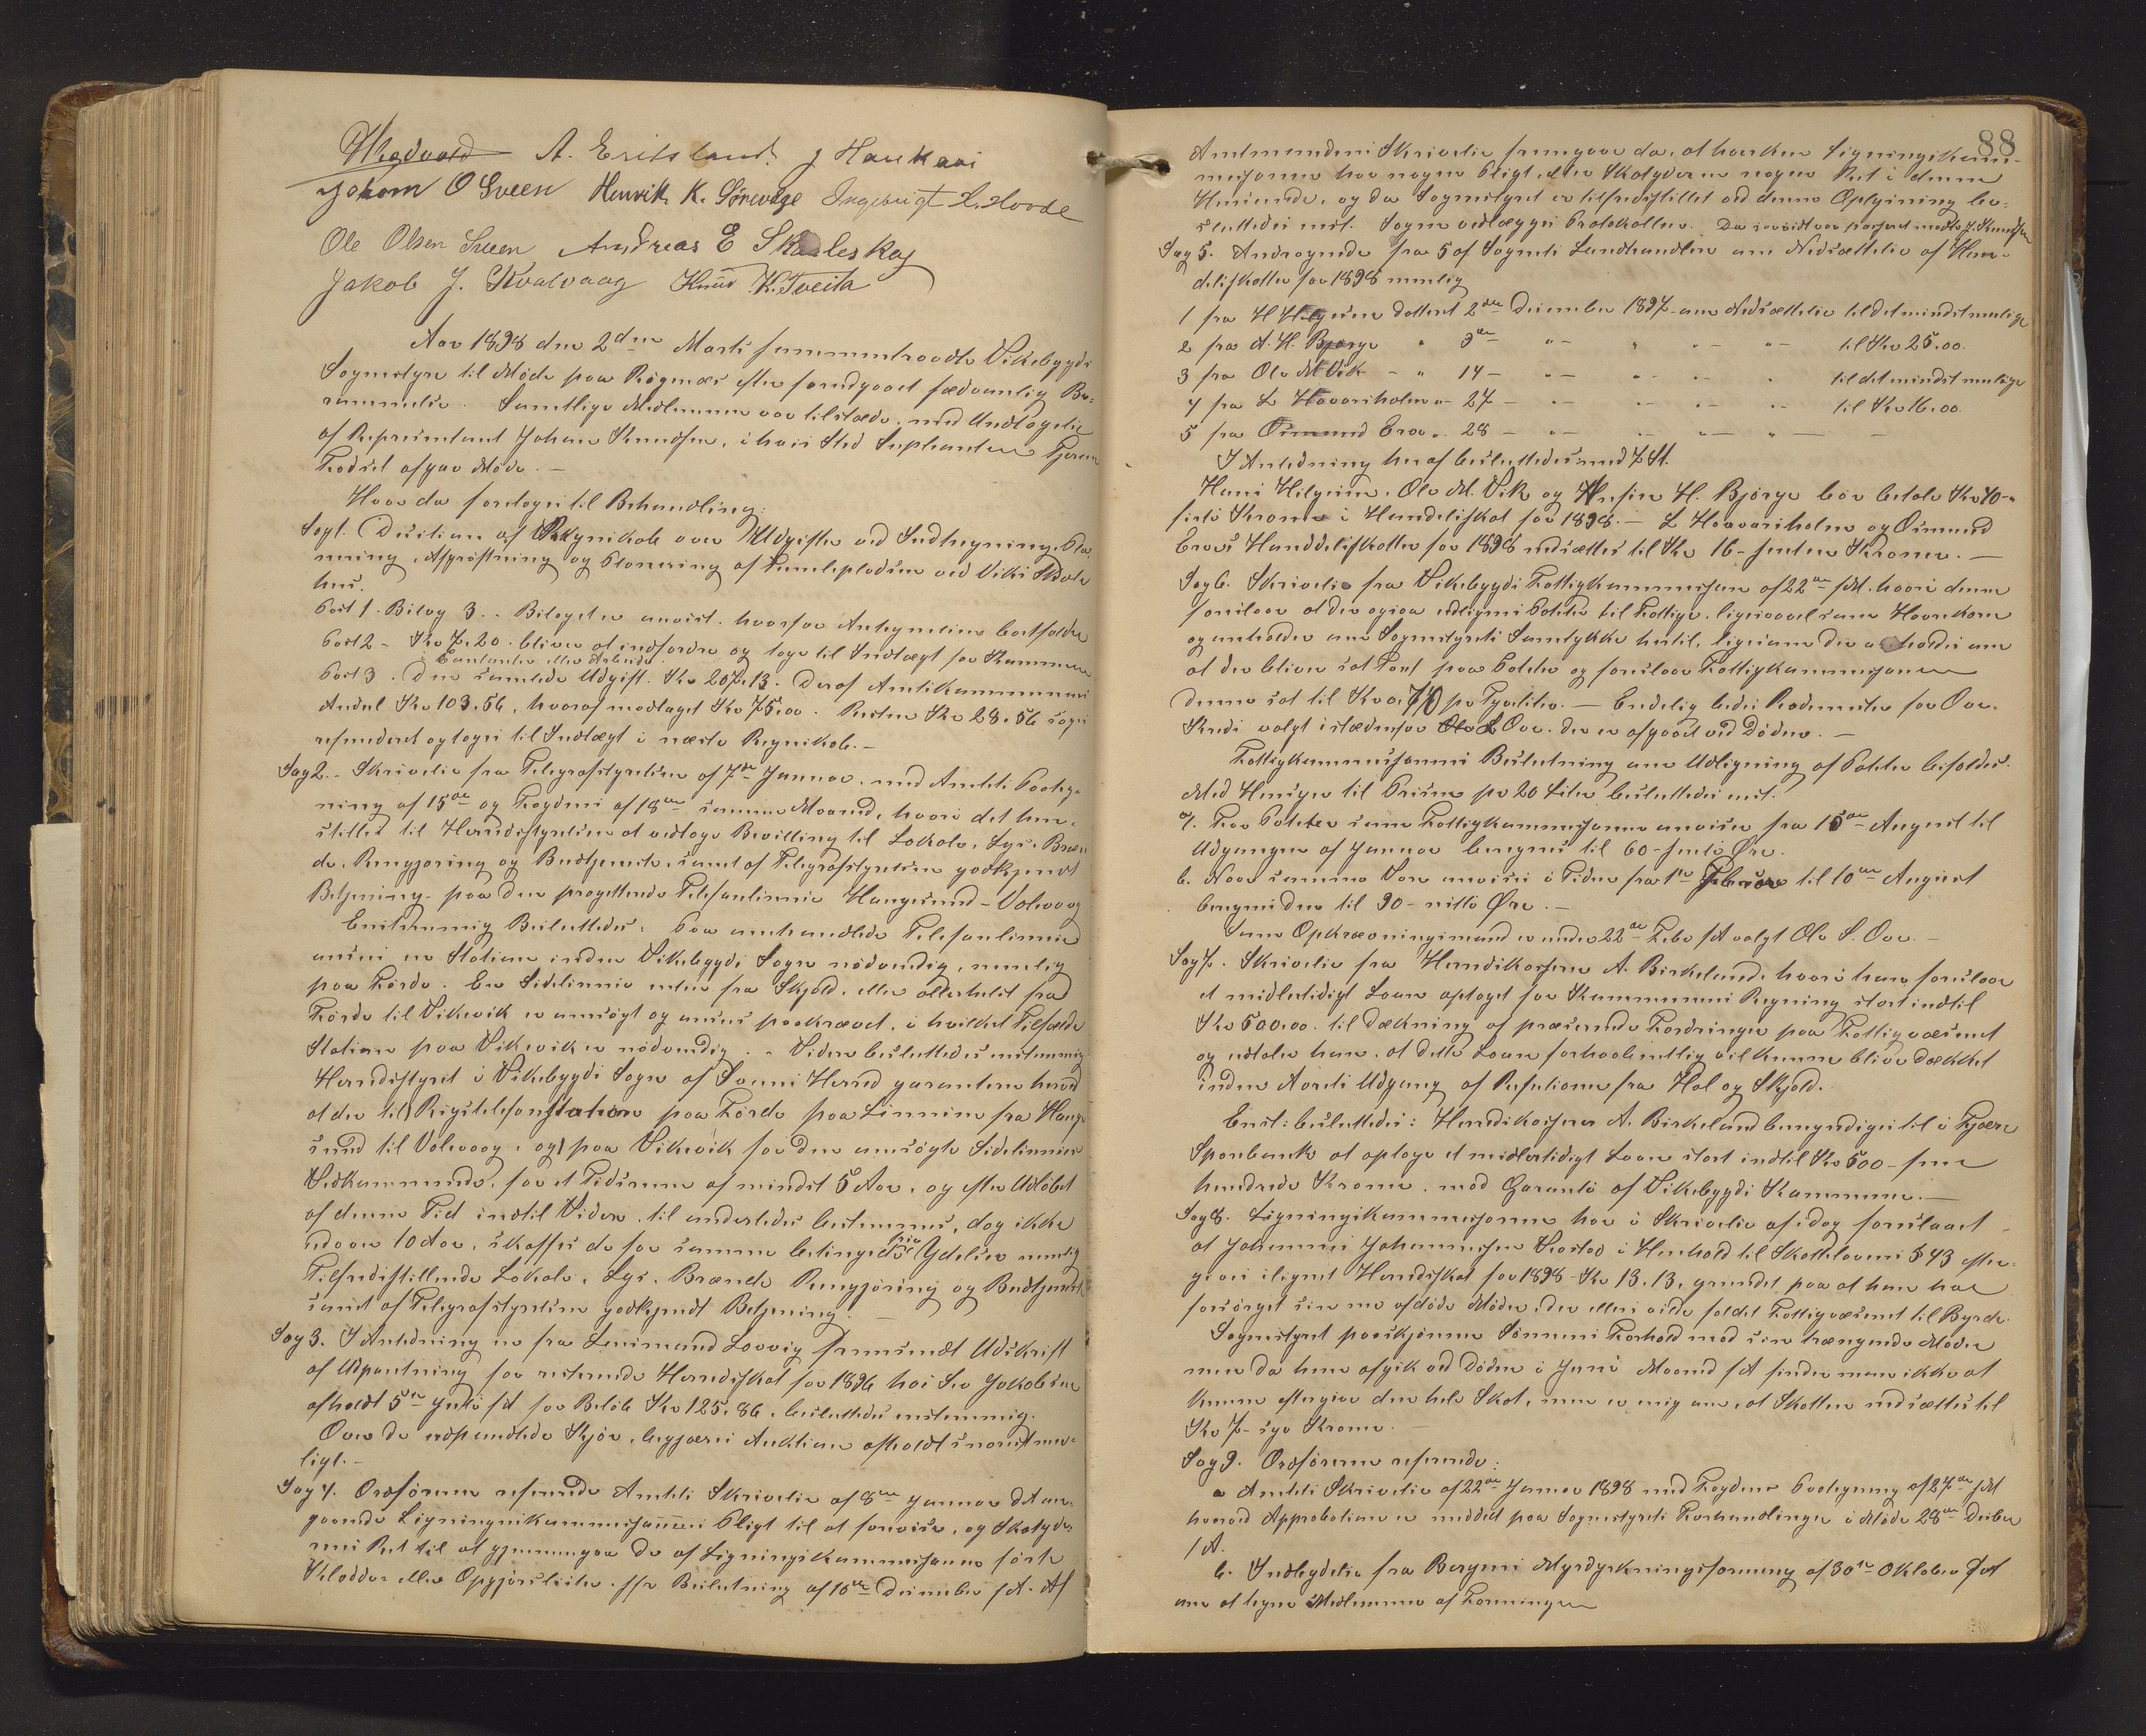 A. Eritsland J Haukaas
Johan O Sveen Henrik K. Sörevåge Ingebrigt H. Hovde
Ole Olsen Sveen Andreas E Skarleskog
Jakob J. Kvalvaag Knud K. Tveita
Aar 1898 den 2den Marts sammentraadte Vikebygds
Sognestyre til Møde paa Røgenæs efter forudgaaet sædvanlig Be-
rammelse. Samtlige Medlemmer var tilstæde, med Undtagelse
af Repræsentant Johan Knudsen, i hvis Sted Suplianten
afgav Møde.—
Hvor da foretoges til Behandling:
Sag 1. Decision af Regnskab over Udgifter ved Indhegning, Pla-
nering, Afgrøftning og Planering af Tomtepladsen ved Viks Skole-
hus.
Post 1. Bilag 3. Bilaget er anvist. hvorfor Antegnelsen bortfalder
Post 2 - Kr 7.20. bliver at indfordre og tage til Indtægt for Kommunen
i Contanter eller Arbeide.
Post 3. Den samlede Udgift Kr 207.13. Deraf Amtskommunens
Andel Kr 103.56, hvoraf modtaget Kr 75.00. Resten Kr 28.56 søges
refunderet og tages til Indtægt i næste Regnskab.—
Sag 2. Skrivelse fra Telegrafstyrelsen af 7de Januar. med Amtets Paateg-
ning af 15de og Fogdens af 18de samme Maaned, hvori det hen-
stilles til Herredsstyrelsen at vedtage Bevilling til Lokale, Lys, Bræn-
de, Rengjøring og Budtjeneste, samt af Telegrafstyrelsen godkjendt
Betjening paa den projekterede Telefonlinnie Haugesund - Valevaag
Enstemmig Besluttedes: Paa omhandlede Telefonlinnie
ansees en Station inden Vikebygds Sogn nødvendig, nemlig
paa Førde. En Sidelinnie enten fra Skjold, eller allerhelst fra
Førde til Vikevik er ansøgt og ansees paakrævet, i hvilket Tilfælde
Station paa Vikevik er nødvendig. - Videre besluttedes enstemmig
Herredsstyret i Vikebygds Sogn af Sveens Herred garanterer herved
at der til Rigstelefonstation paa Førde paa Linnien fra Hauge-
sund til Valevaag, og paa Vikevik for den ansøgte Sidelinnies
Vedkommende, for et Tidsrum af mindst 5 Aar, og efter Udløbet
af denne Tid indtil Videre, til anderledes bestemmes, dog ikke
udover 10 Aar, skaffes de for samme betingede frie Ydelser nemlig
Tilfredsstillende Lokale, Lys, Brænde Rengjøring og Budtjeneste
samt af Telegrafstyrelsen godkjendt Betjening.—
Sag 3. I Anledning en fra Lensmand Lovvig fremsendt Udskrift
af Udpantning for resterende Herredsskat for 1896 hos
afholdt 5te Juli f.A for Beløb Kr 125.86, besluttedes enstemmig.
Over de udpantede Kjør, begjæres Auktion afholdt snarest mu-
ligt.—
Sag 4. Ordføreren refererede Amtets Skrivelse af 8de Januar d.A an-
gaaende Ligningskommissionens Pligt til at forevise, og Skatyder-
nes Ret til at gjennemgaa de af Ligningskommissionen førte
Kladder eller Opgjørslister. jfr Beslutning af 10de December f.A. Af
88
Amtmandens Skrivelse fremgaar da, at hverken Ligningskom-
missionen har nogen Pligt, eller Skatyderne nogen Ret i denne
Henseende, og da Sognestyret er tilfredsstillet ved denne Oplysning be-
sluttedes enst. Sagen vedlægges Protokollen.
Sag 5. Andragende fra 5 af Sognets Landhandlere om Nedsættelse af Han-
delsskatten for 1898 nemlig
1 fra H Helgesen dateret 2den December 1897 om Nedsættelse til det mindst mulige
2 fra A. H. Bjorge " 3de " " " til Kr 25.00.
3 fra Ole M Vik - " 14 - " " " til det mindst mulige
4 fra L Havarsholm " 27 - " " " til Kr 16.00
5 fra Osmund Eros " 28 - " " " -
I Anledning heraf besluttedes med 7 St.
Hans Helgesen, Ole M. Vik og H. Bjørge bør betale Kr 40 -
firti Kroner i Handelsskat for 1898.— L Havarsholm og Osmund
Eros Handelsskatten for 1898 nedsættes til Kr 16 - seisten Kroner.—
Sag 6. Skrivelse fra Vikebygds Fattigkommission af 22de f.M. hvori denne
foreslaar at der ogsaa udlignes Poteter til Fattige, ligesaavel som Havrekorn
og anholder om Sognestyrets Samtykke hertil, ligesom der anholdes om
at der bliver sat Taxt paa Poteter og foreslaar Fattigkommissionen
denne sat til Kr 0,70 pr . — Endelig bedes Rodemester for Ove-
Kreds valgt istædenfor Ole L Ove. der er afgaaet ved Døden.—
Fattigkommissionens Beslutning om Udligning af Poteter bifaldes.
Med Hensyn til Prisen pr 20 Liter besluttedes enst.
a. For Poteter som Fattigkommissionen anviser fra 15de August til
Udgangen af Januar beregnes til 60 - seksti Øre.
b. Naar samme Vare anvises i Tiden fra 1ste Februar til 10de August
beregnes den til 90 - nitti Øre.—
Som Opkrævningsmand er under 22de Febr f.A valgt Ole S. Ove.—
Sag 7. Skrivelse fra Herredskasserer A. Birkeland, hvori han foreslaar
et midlertidigt Laan optaget for Kommunens Regning stort indtil
Kr 500.00. til Dækning af presserende Fordringer paa Fattigvæsenet
og udtaler han, at dette Laan forhaabentlig vil kunne blive dækket
inden Aarets Udgang af Refusioner fra Hal og Skjold.
Enst: besluttedes: Herredskasserer A. Birkeland bemyndiges til i Fjære
Sparebank at optage et midlertidigt Laan stort indtil Kr 500 - fem
hundrede Kroner, mod Garanti af Vikebygds Kommune.—
Sag 8. Ligningskommissionen har i Skrivelse af idag foreslaaet
at Johannes Johannessen i Henhold til Skatteloven § 43 efter-
gives ilignet Herredsskat for 1898 - Kr 13.13, grundet paa at han har
forsørget sin nu afdøde Moder, der ellers vilde faldet Fattigvæsenet til Byrde.
Sognestyret paaskjønner Sønnens Forhold mod sin trængende Moder
men da hun afgik ved Døden i Juni Maaned f.A finder man ikke at
kunne eftergive den hele Skat, men er enig om, at Skatten nedsættes til
Kr 7 - syv Kroner.—
Sag 9. Ordføreren refererede:
a Amtets Skrivelse af 22de Januar 1898 med Fogdens Paategning af 27de f.M
hvorved Approbation er meddelt paa Sognestyrets Forhandlinger i Møde 28de Decbr
f.A.
b. Indbydelse fra Bergens Myrdyrkningsforening af 30te Oktober f.A
om at tegne Medlemmer af Foreningen